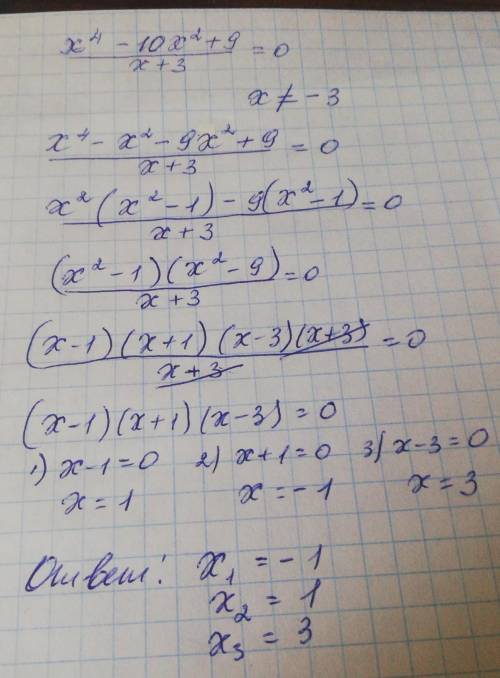 x⁴ - 10x² + 9 / x + 3 = 0
x ≠ - 3
x⁴ - x² - 9x² + 9 / x + 3 = 0
x² (x² - 1) - 9(x² - 1) / x + 3 = 0
(x² - 1) (x² - 9) / x + 3 = 0
(x - 1) (x + 1) (x - 3) (x + 3) / x + 3 = 0
(x - 1) (x + 1) (x - 3) = 0
1) x - 1 = 0 2) x + 1 = 0 3) x - 3 = 0
x = 1 x = - 1 x = 3
Ответ: x₁ = - 1
x₂ = 1
x₃ = 3